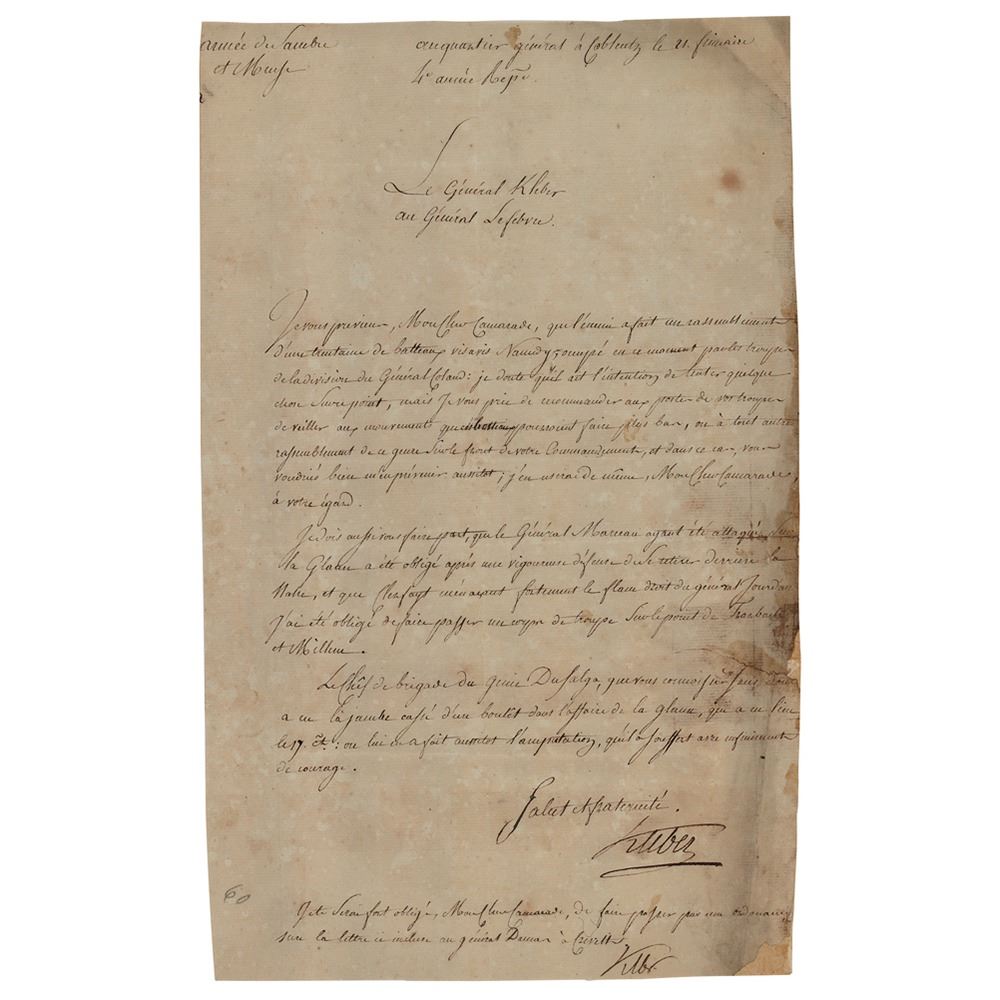 armée de Sambre
et Meuse
au quartier général à Coblentz le 21. frimaire
4e année Repne.
Le Général Kleber
au Général Lefebvre.
Je vous previens, Mon Cher Camarade, que l'ennemi a fait un rassemblement
d'une trentaine de batteaux vis avis occupé en ce moment par les troupes
de la division du Général Coland: je doute qu'il ait l'intention de tenter quelque
chose sur ce point, mais Je vous prie de recommander aux postes de vos troupes
de veiller aux mouvements que ces batteaux pourroient faire plus bas, ou à tout autre
rassemblement de ce genre sur le front de votre Commandement, et dans ce cas, vous
voudrés bien m'en prévenir aussitot; j'en userai de même, Mon Cher Camarade,
à votre égard.
Je dois aussi vous faire part, que le Général Marceau ayant été attaqué sur
la Glaun a été obligé après une vigoureuse défense de se retirer derriere la
Nahe, et que Clerfayt menaçant fortement le flanc droit du général Jourdan
J'ai été obligé de faire passer un corps de troupe sur le point de Trarbach
et
Le Chef de brigade du genie Dufalga, que vous connoissiez sans doute
a eu la jambe cassé d'un boulêt dans l'affaire de la glaun, qui a eu lieu
le 17. Ct.: on lui en a fait aussitot l'amputation, qu'il a souffert avec infiniment
de courage.
Salut et fraternité.
Kleber
60
Je te Serai fort obligé, Mon Cher Camarade, de faire passer par une ordonnance
sure la lettre ci incluse au général Damas à Crevelt
Kleber